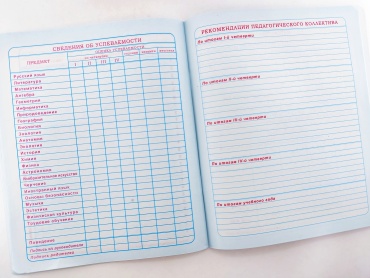 СВЕДЕНИЯ ОБ УСПЕВАЕМОСТИ
ПРЕДМЕТ
I II III IV
Русский язык
Литература
Математика
Алгебра
Геометрия
Информатика
Природоведение
География
Биология
Экология
Анатомия
История
Химия
Физика
Астрономия
Изобразительное искусство
Черчение
Иностранный язык
Основы безопасности
Музыка
Физическая культура
Трудовое обучение
Поведение
РЕКОМЕНДАЦИИ ПЕДАГОГИЧЕСКОГО КОЛЛЕКТИВА
По итогам I-й четверти
По итогам II-й четверти
По итогам III-й четверти
По итогам IV-й четверти
По итогам учебного года